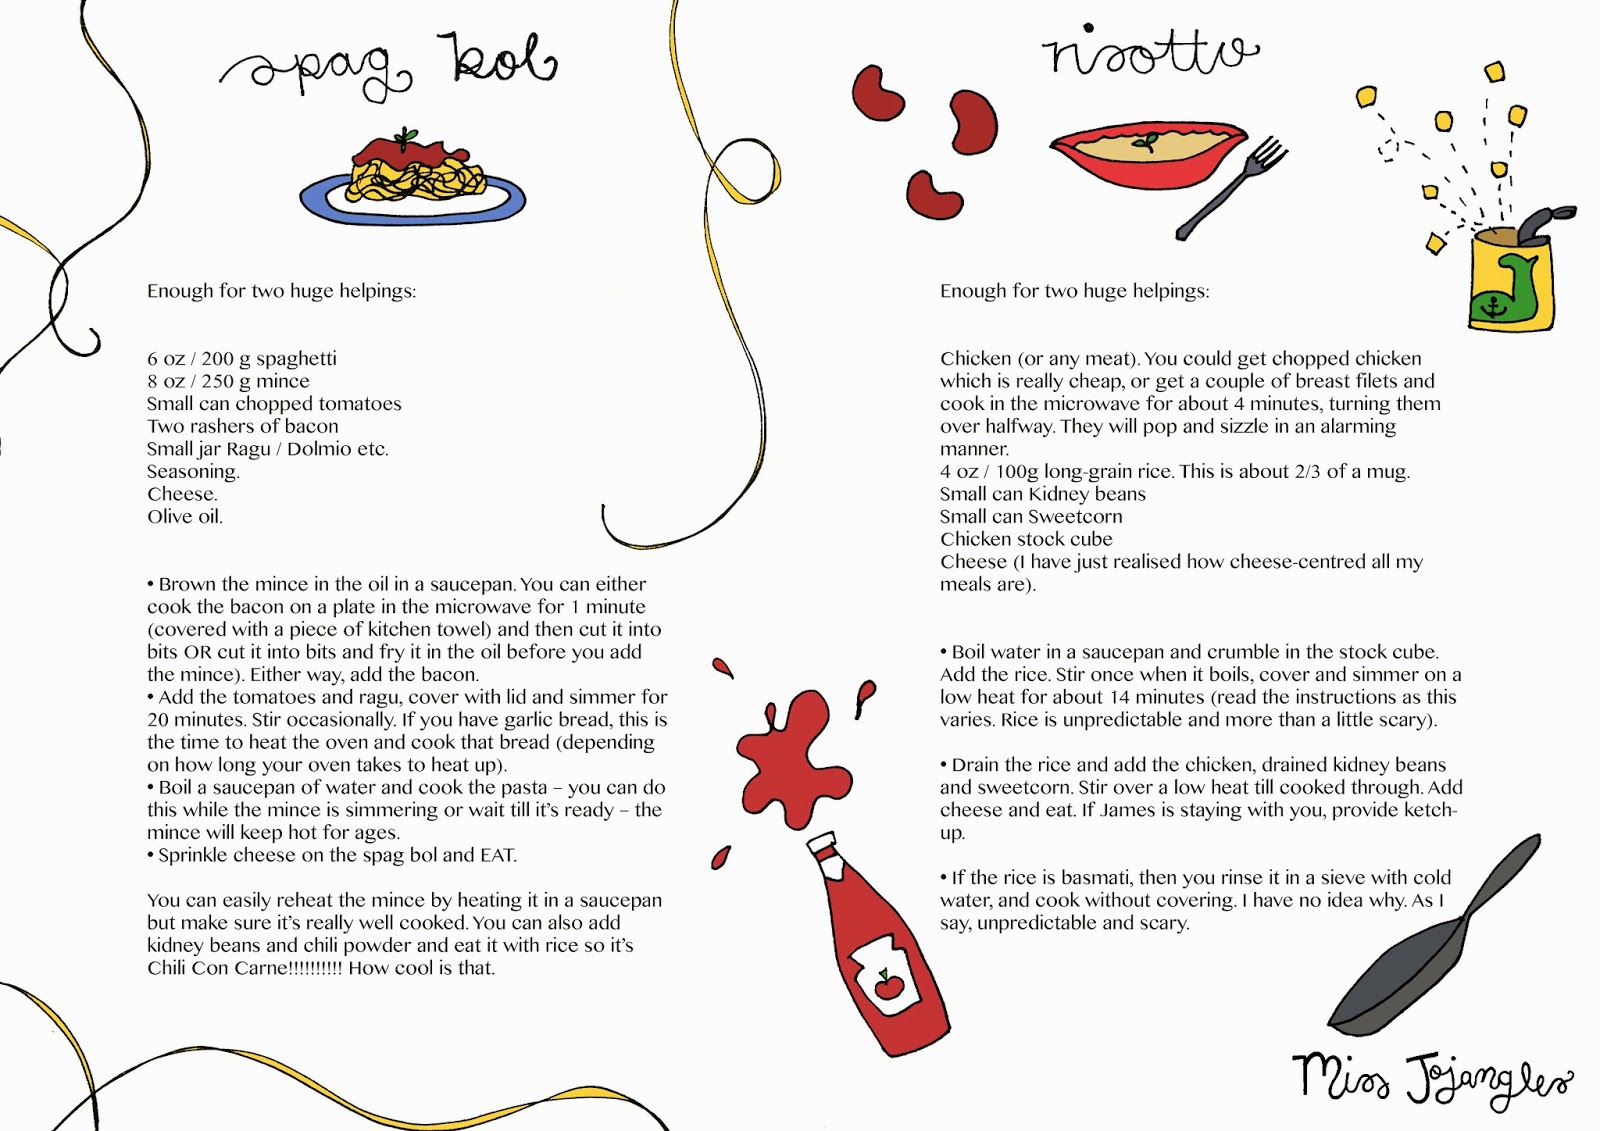 spag bol
Enough for two huge helpings:
6 oz / 200 g spaghetti
8 oz / 250 g mince
Small can chopped tomatoes
Two rashers of bacon
Small jar Ragu / Dolmio etc.
Seasoning.
Cheese.
Olive oil.
• Brown the mince in the oil in a saucepan. You can either
cook the bacon on a plate in the microwave for 1 minute
(covered with a piece of kitchen towel) and then cut it into
bits OR cut it into bits and fry it in the oil before you add
the mince). Either way, add the bacon.
• Add the tomatoes and ragu, cover with lid and simmer for
20 minutes. Stir occasionally. If you have garlic bread, this is
the time to heat the oven and cook that bread (depending
on how long your oven takes to heat up).
• Boil a saucepan of water and cook the pasta – you can do
this while the mince is simmering or wait till it's ready – the
mince will keep hot for ages.
• Sprinkle cheese on the spag bol and EAT.
You can easily reheat the mince by heating it in a saucepan
but make sure it's really well cooked. You can also add
kidney beans and chili powder and eat it with rice so it's
Chili Con Carne!!!!!!!!!! How cool is that.
risotto
Enough for two huge helpings:
Chicken (or any meat). You could get chopped chicken
which is really cheap, or get a couple of breast filets and
cook in the microwave for about 4 minutes, turning them
over halfway. They will pop and sizzle in an alarming
manner.
4 oz / 100g long-grain rice. This is about 2/3 of a mug.
Small can Kidney beans
Small can Sweetcorn
Chicken stock cube
Cheese (I have just realised how cheese-centred all my
meals are).
• Boil water in a saucepan and crumble in the stock cube.
Add the rice. Stir once when it boils, cover and simmer on a
low heat for about 14 minutes (read the instructions as this
varies. Rice is unpredictable and more than a little scary).
• Drain the rice and add the chicken, drained kidney beans
and sweetcorn. Stir over a low heat till cooked through. Add
cheese and eat. If James is staying with you, provide ketch-
up.
• If the rice is basmati, then you rinse it in a sieve with cold
water, and cook without covering. I have no idea why. As I
say, unpredictable and scary.
Miss Jojangles